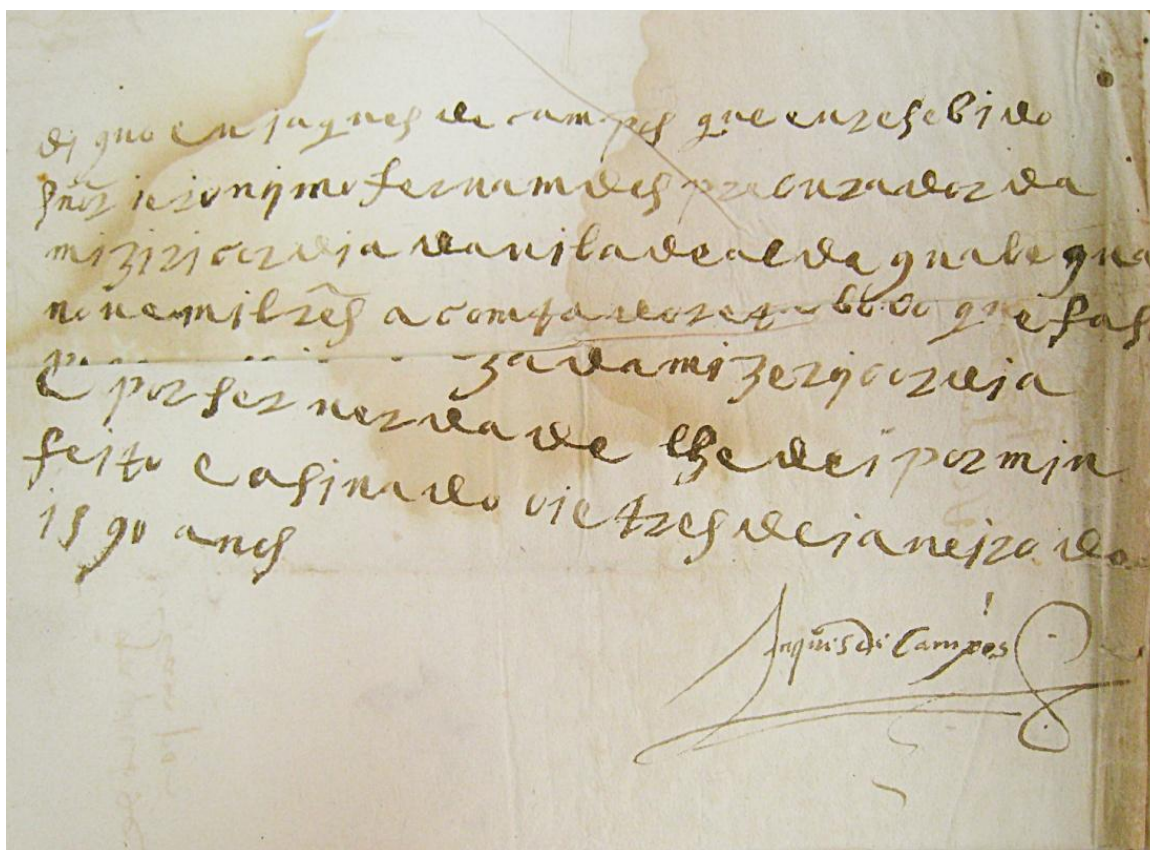 diguo eu jaques de campos que eu resebi do
sñor jeronymo fernamdes precurador da
mizirjcordja da vila de aldegualegua
nove mil rẽs a comta do que fas
za da mizerycordja
e por ser verdade lhe dei por min
feito e asinado oje tres de janejro do
1590 anos
Jaques de Campos